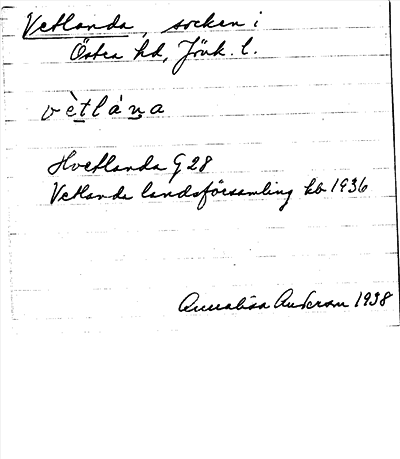 Vetlanda, socken i
Östra hd, Jönk. l.
vètlána
Hvetlanda G 28
Vetlanda landsförsamling kb 1936
Annalisa Anderson 1938